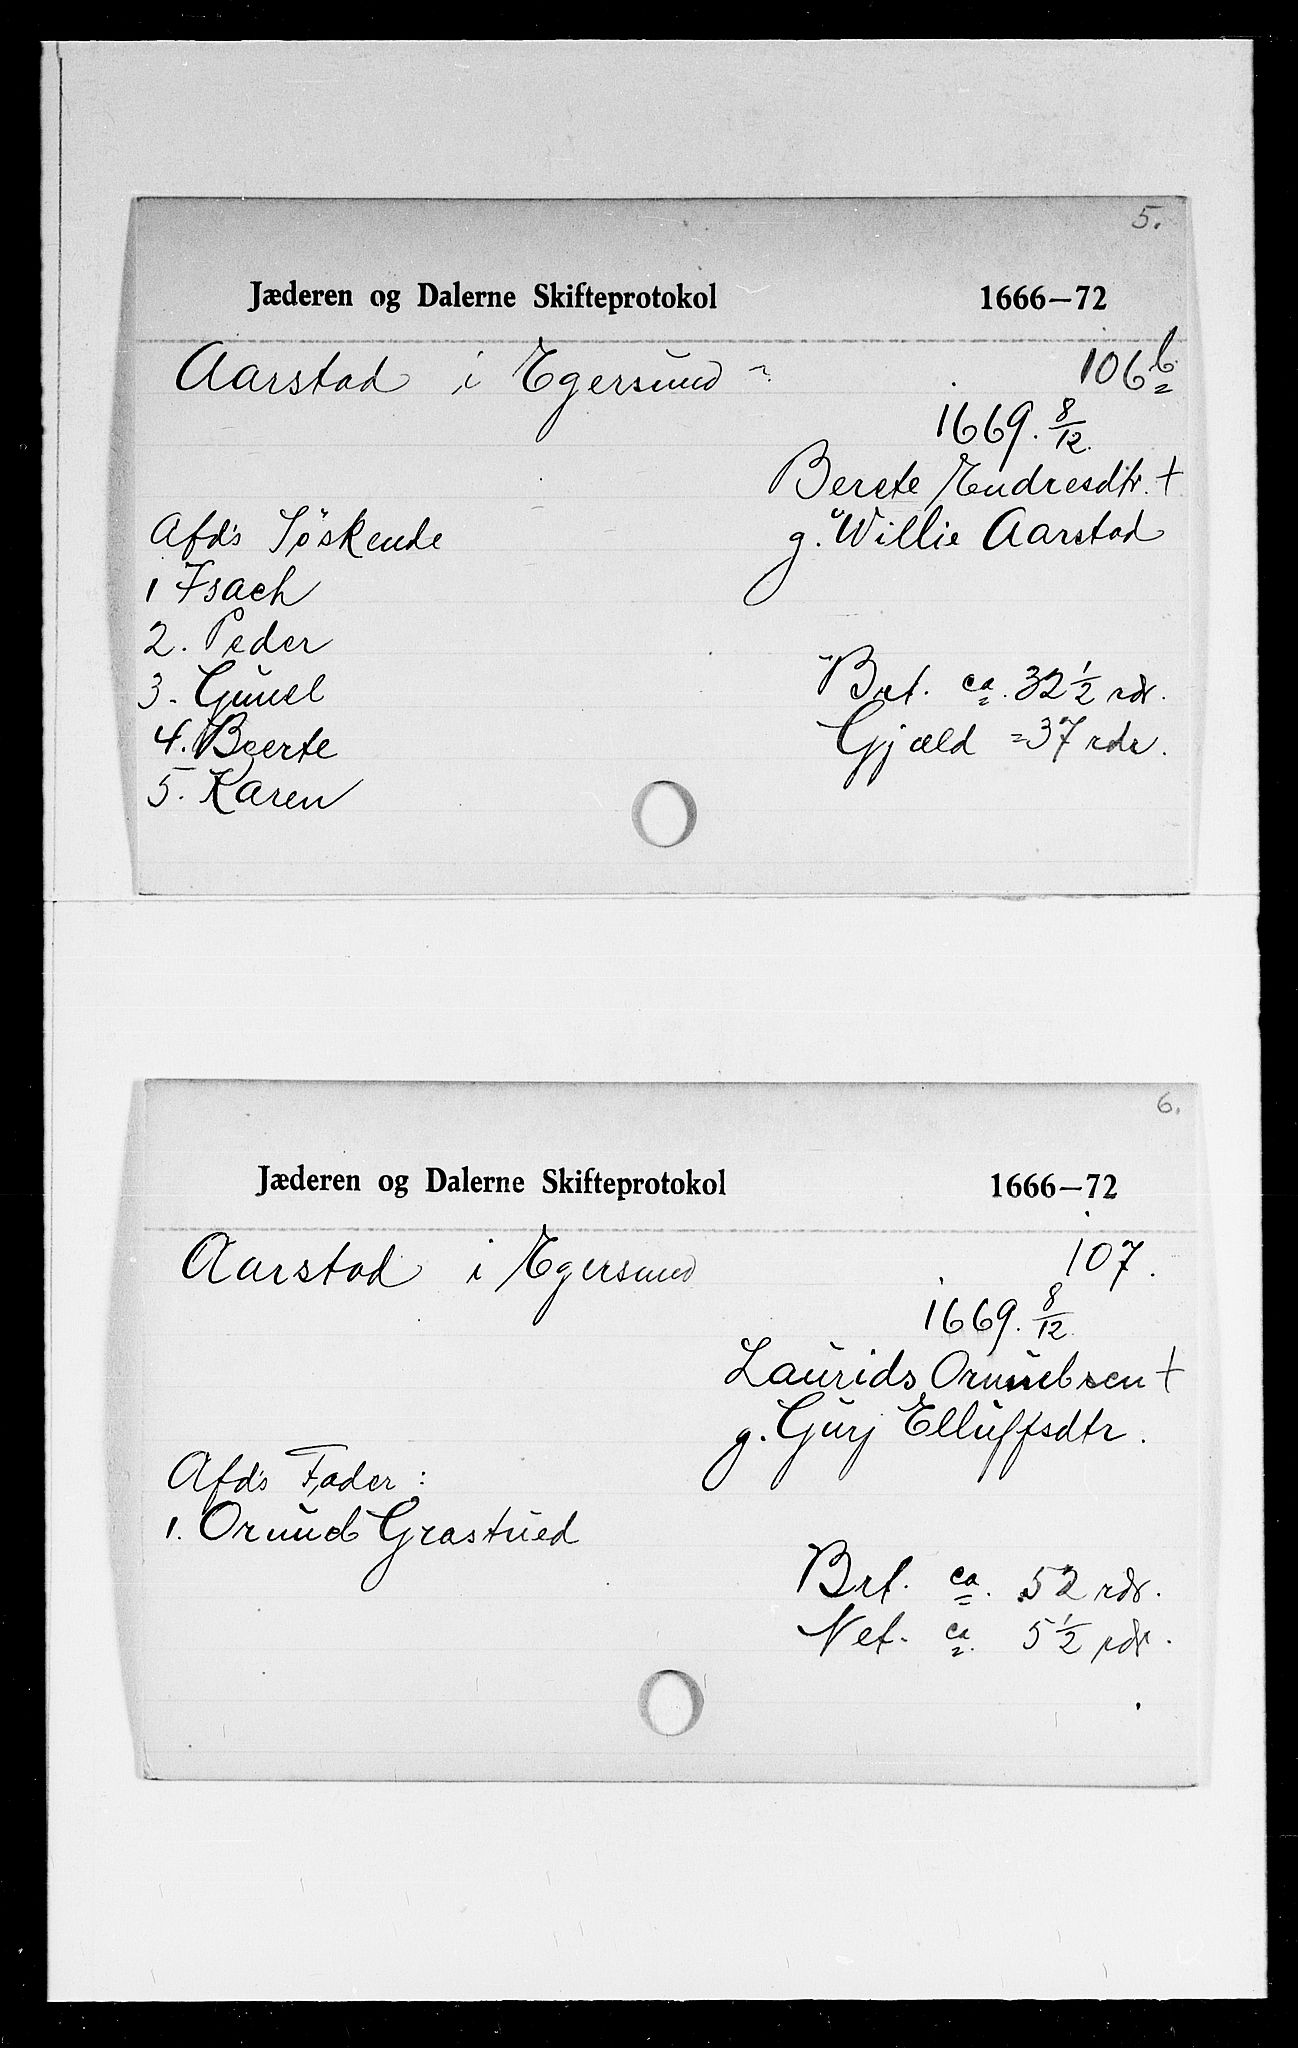 5.
Jæderen og Dalerne Skifteprotokol 1666-72
Aarstad i Egersund 106b
1669. 8/12.
Berete Endresdtr. +
g. Willie Aarstad
Afd's Söskende
1 Isach
2. Peder
3. Gunel
4. Beerte
5. Karen
Brt. ca. 32 1/2 rdr.
Gjæld = 37 rdr.
6.
Jæderen og Dalerne Skifteprotokol 1666-72
Aarstad i Egersund 107.
1669. 8/12.
Laurids sen +
g. Gurj Elluffsdtr.
Afd's Fader:
1. Grastued
Brt. ca. 52 rdr.
Net. ca. 5 1/2 rdr.